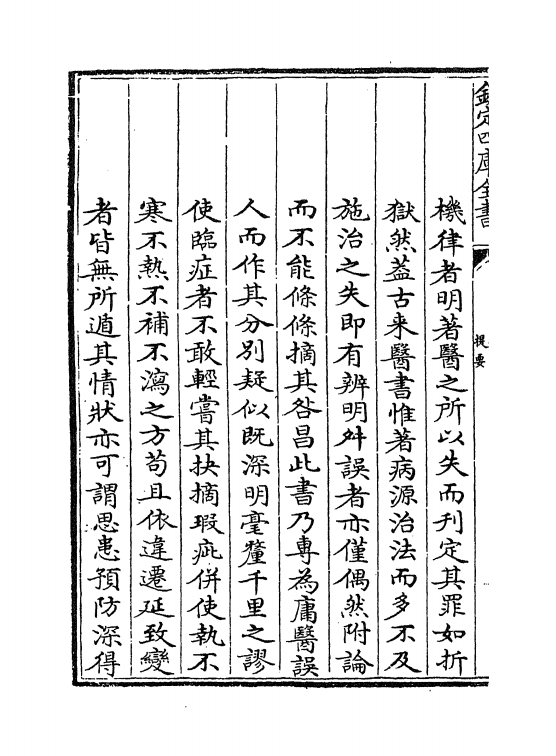 欽定四庫全書
提要
機律者明著醫之所以失而刋定其罪如折
獄然葢古来醫書惟著病源治法而多不及
施治之失即有辨明舛誤者亦僅偶然附論
而不能條條摘其咎昌此書乃專為庸醫誤
人而作其分别疑似既深明毫釐千里之謬
使臨症者不敢輕嘗其抉摘瑕疵併使執不
寒不熱不補不瀉之方苟且依違遷延致變
者皆無所遁其情狀亦可謂思患預防深得